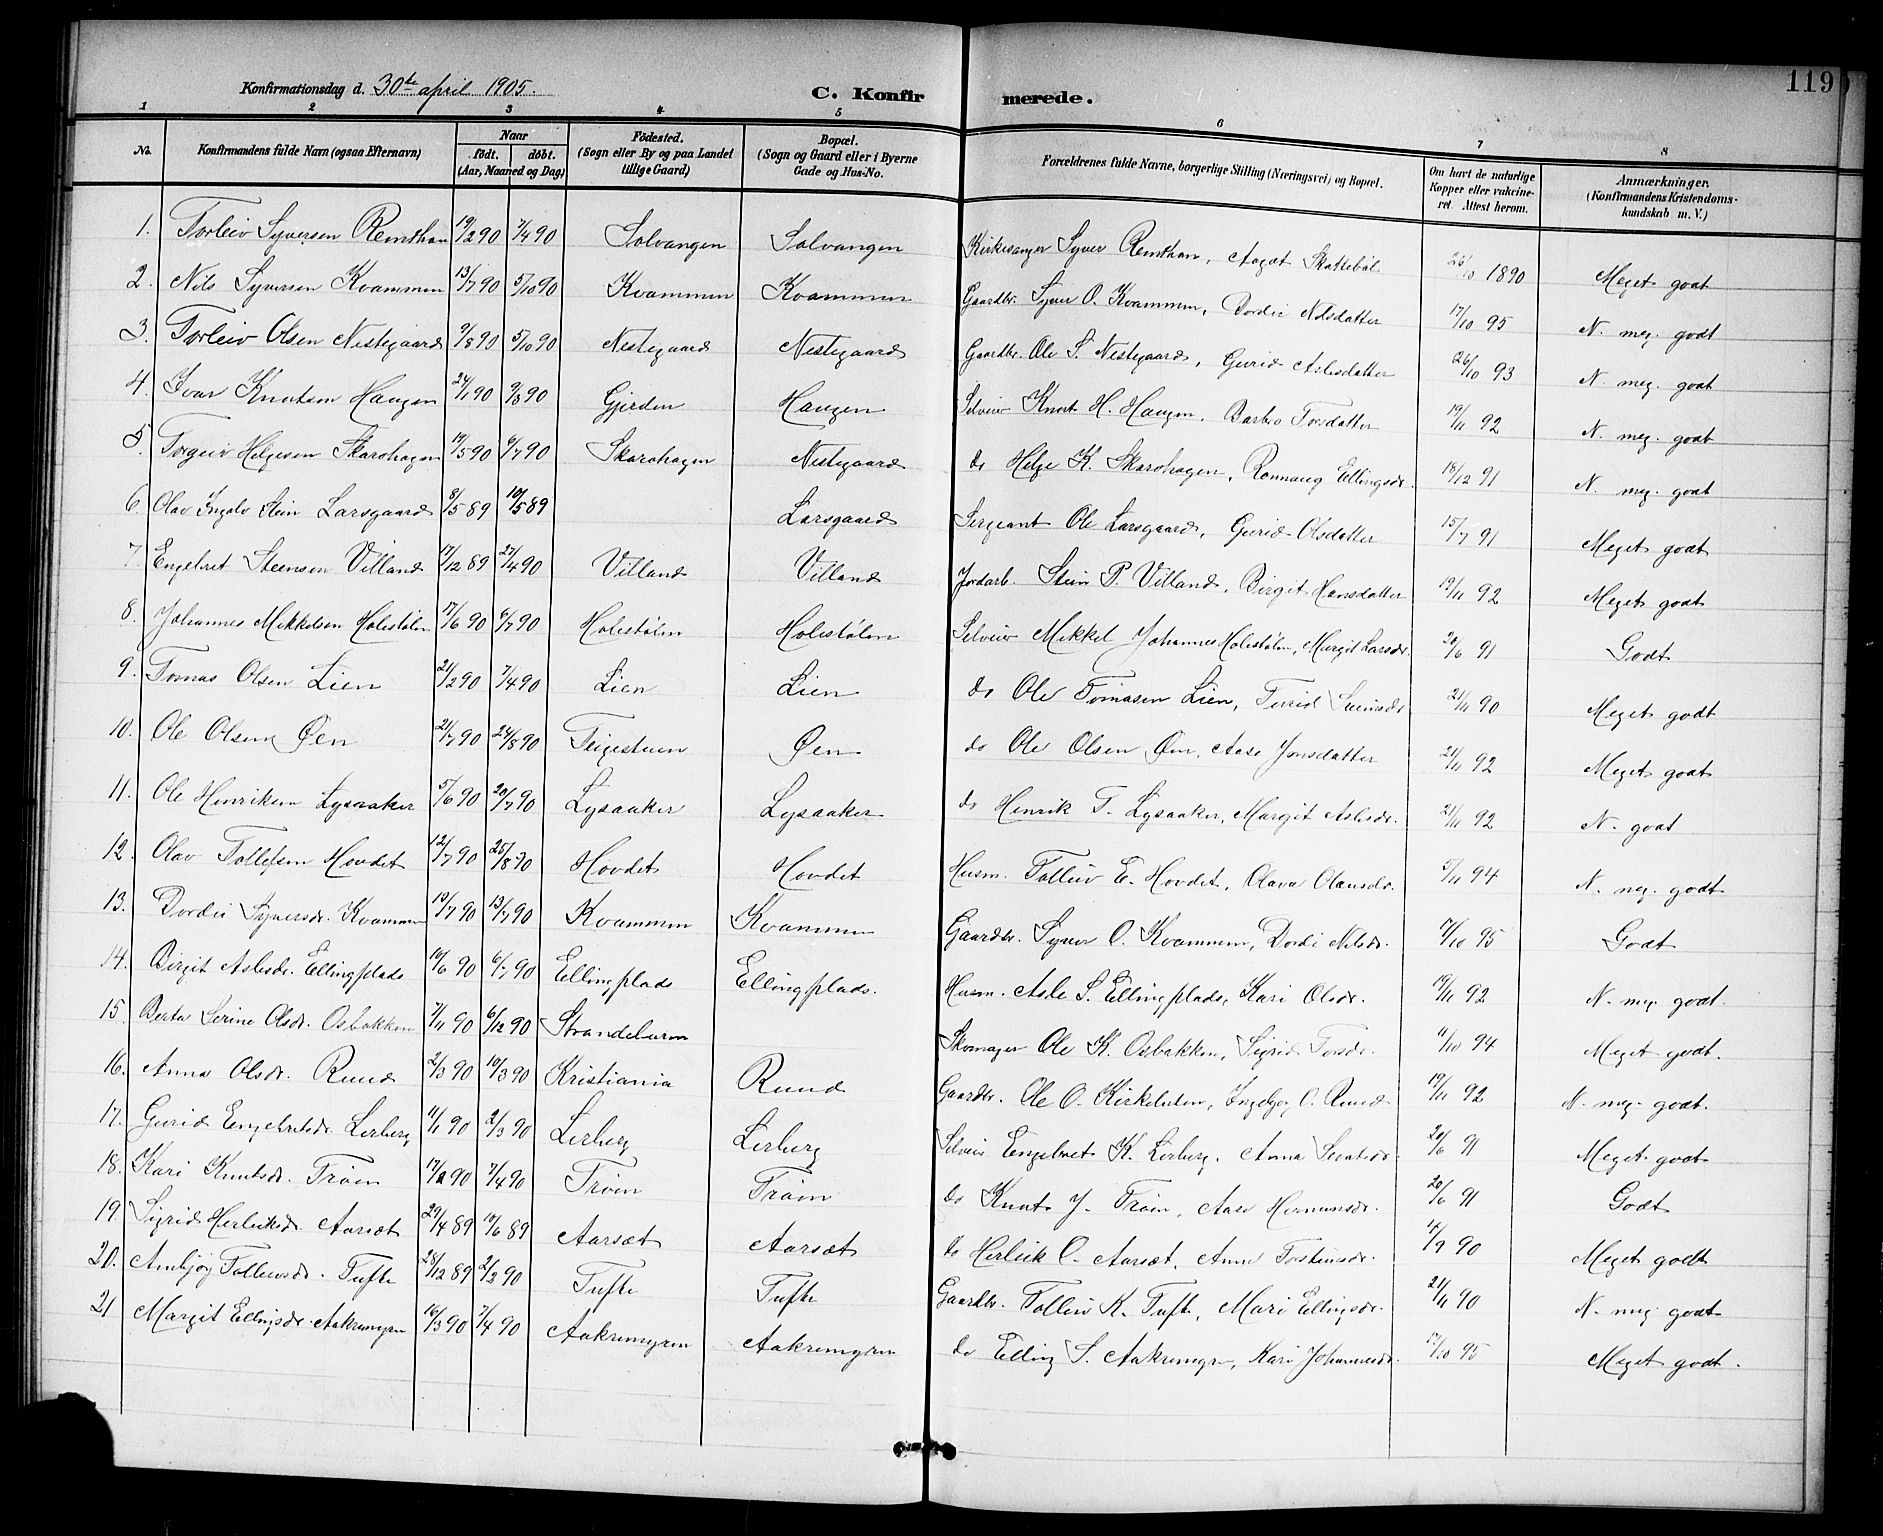 119
Konfirmationsdag d. 30te april 1905.
C. Konfirmerede.
1 2 3 4 5 6 7 8
No. Konfirmandens fulde Navn (ogsaa Efternavn) Naar født. døbt. (Aar, Maaned og Dag) Födested. (Sogn eller By og paa Landet tillige Gaard) Bopæl. (Sogn og Gaard eller i Byerne Gade og Hus-No. Forældrenes fulde Navne, borgerlige Stilling (Næringsvei) og Bopæl. Om havt de naturlige Kopper eller vakcineret. Attest herom. Anmærkninger. (Konfirmandens Kristendomskundskab m. V.)
1. Torleiv Syversen Remthan 19/2 90 7/4 90 Solvangen Solvangen Kirkesanger Syver Remthan, Aagot Skattebøl 1890 Meget godt
2. Nils Syversen Kvammen 13/7 90 5/10 90 Kvammen Kvammen Gaardbr. Syver O. Kvammen, Dordi Nilsdatter 17/10 95 N. meg. godt
3. Torleiv Olsen Nestegaard 9/8 90 5/10 90 Nestegaard Nestegaard Gaardbr. Ole S. Nestegaard, Gurid Aslesdatter 26/10 93 N. meg. godt
4. Ivar Knutsen Haugen 24/1 90 9/3 90 Gjerden Haugen Selveier Knut H. Haugen, Barbro Torsdatter 19/11 92 N. meg. godt
5. Torgeir Helgesen Skarohagen 17/5 90 6/7 90 Skarohagen Nestegaard do Helge K. Skarohagen, Rønnaug Ellingsdr. 18/12 91 N. meg. godt
6. Olav Ingolv Stein Larsgaard 8/5 89 10/5 89 Larsgaard Sergeant Ole Larsgaard, Gurid Olsdatter 15/7 91 Meget godt
7. Engebret Steensen Villand 17/12 89 27/4 90 Villand Villand Jordarb. Stein P. Villand, Birgit Hansdatter 19/11 92 Meget godt
8. Johannes Mikkelsen Holestølen 17/6 90 6/7 90 Holestølen Holestølen Selveier Mikkel Johannes Holestølen, Margit Larsdr. 20/6 91 Godt
9. Tomas Olsen Lien 21/2 90 7/4 90 Lien Lien do Ole Tomasen Lien, Turid 21/11 90 Meget godt
10. Ole Olsen Øen 21/7 90 24/8 90 Teigestuen Øen do Ole Olsen Øen, Aase Jonsdatter 21/11 92 Meget godt
11. Ole Henriksen Lysaaker 5/6 90 20/7 90 Lysaaker Lysaaker do Henrik T. Lysaaker, Margit Aslesdr. 21/11 92 N. godt
12. Olav Tollefsen Hovdet 12/7 90 25/8 90 Hovdet Hovdet Husm. Tolleiv E. Hovdet, Olava Olausdr. 5/11 94 N. meg. godt
13. Dordi Syversdr. Kvammen 13/7 90 Kvammen Kvammen Gaardbr. Syver O. Kvammen, Dordi Nilsdr. 95 Godt
14. Birgit Aslesdr. Ellingplads 19/6 90 6/7 90 Ellingplads Ellingplads. Husm. Asle S. Ellingplads, Kari Olsdr. 19/11 92 N. meg. godt.
15. Berta Serine Olsdr. Osbakken 7/11 90 6/12 90 Skomager Ole K. Osbakken, Sigrid Torsdr. 11/10 94 Meget godt.
16. Anna Olsdr. Ruud 2/3 90 19/3 90 Kristiania Ruud Gaardbr. Ole O. Ingebjøg O. Ruud 19/11 92 N. meg. godt.
17. Gurid Engebretsdr. Lerberg 11/1 90 2/3 90 Lerberg Lerberg Selveier Engebret K. Lerberg, Anna 20/6 91 Meget godt
18. Kari Knutsdr. Trøim 90 7/4 90 Trøim Trøim do Knut J. Trøim, Aase Hermunsdr. 20/6 91 Godt
19. Sigrid Herleiksdr. Aarsæt 29/4 89 19/6 89 Aarsæt Aarsæt do Herleik O. Aarsæt, Anne Torsteinsdr. 4/9 90 Meget godt
20. Anbjøg Tolleivsdr. Tufte 28/12 89 2/2 90 Tufte Tufte Gaardbr. Tolleiv K. Tufte, Mari Ellingsdr. 21/11 90 N. meg. godt
21 Margit Ellingsdr. Aakremyren 16/3 90 7/4 90 Aakremyren Aakremyren do Elling S. Aakremyren, Kari Johannesdr. 17/10 95 Meget godt.